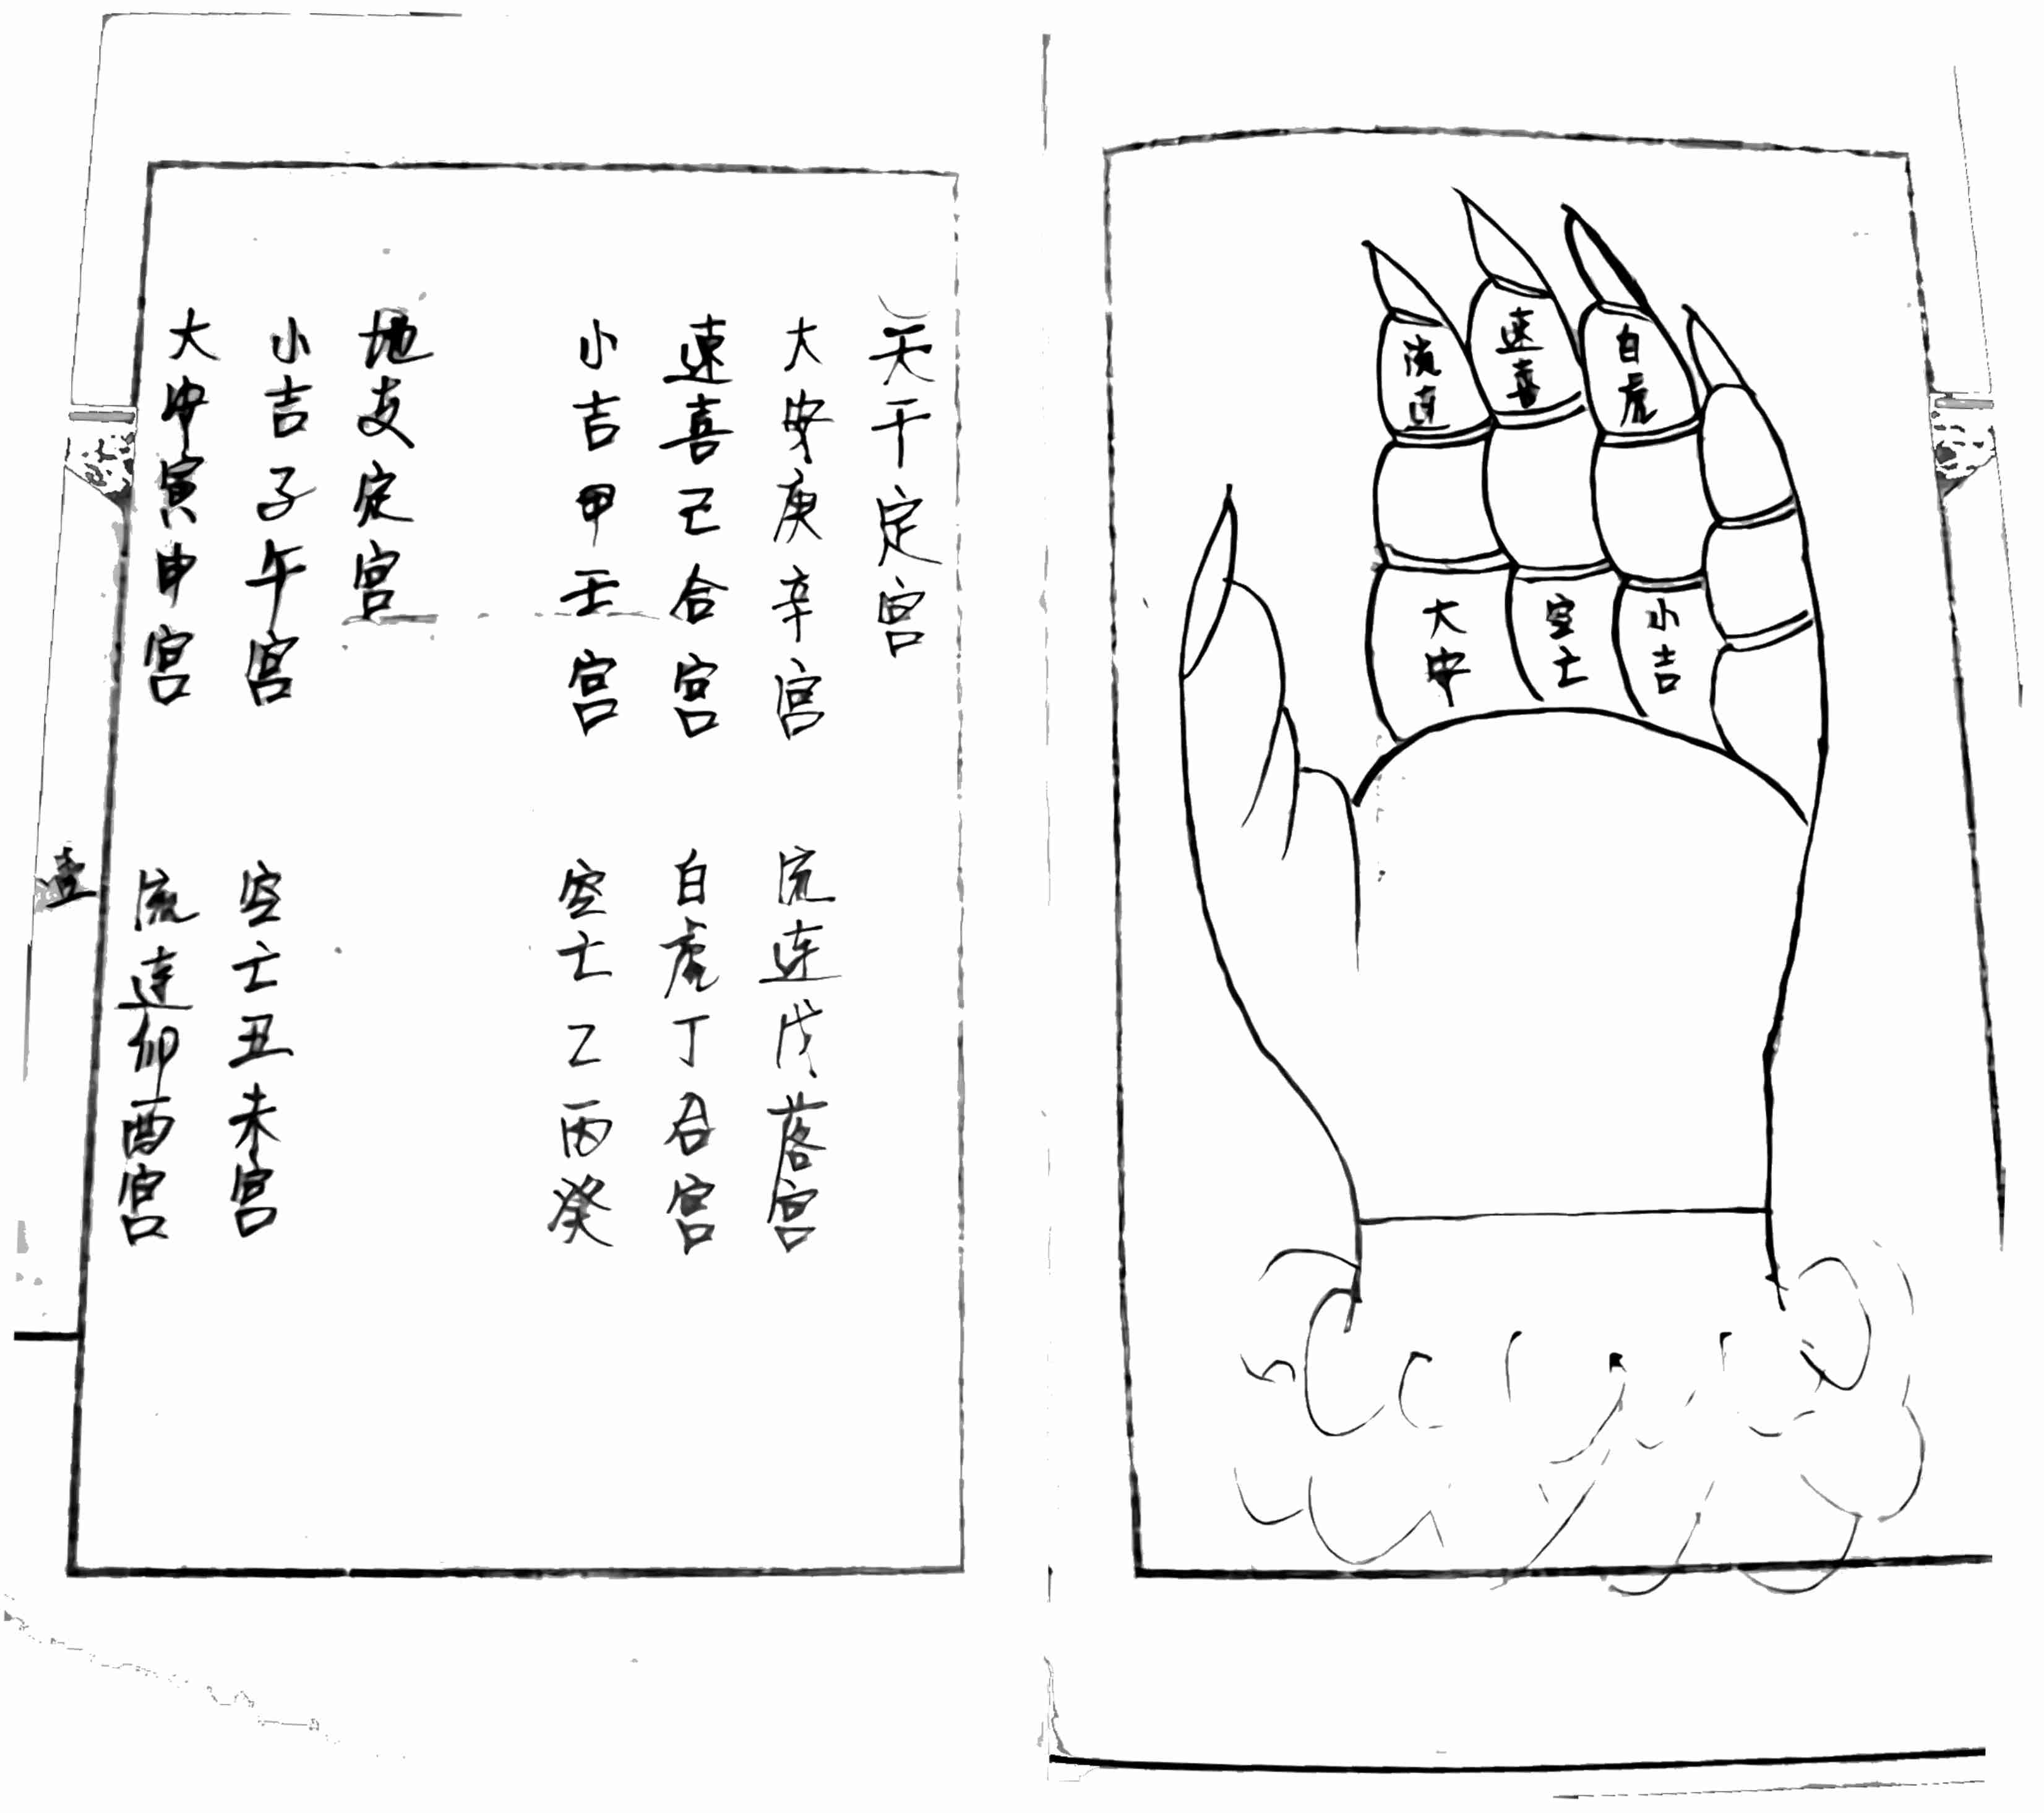 流連
速喜
白虎
大安
空亡
小吉
天干定宫
大安庚辛宫 流连戊落宫
速喜己合宫 白虎丁合宫
小吉甲壬宫 空亡乙丙癸
地支定宫
小吉子午宫 空亡丑未宫
大安寅申宫 流连卯酉宫
壹